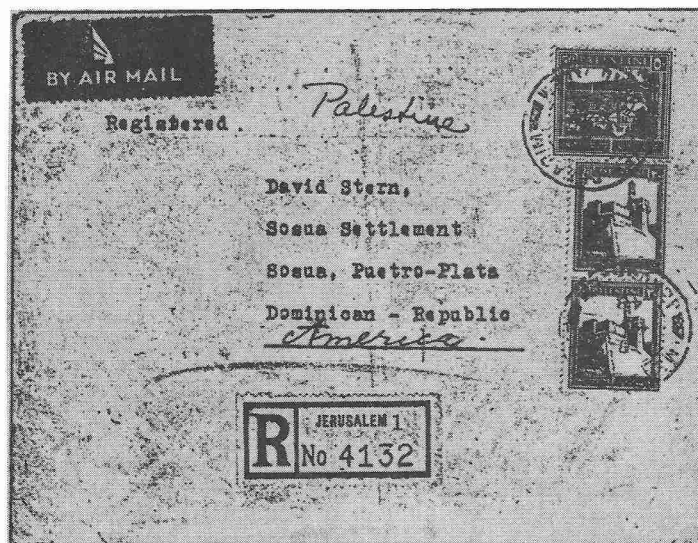 BY AIR MAIL
Registered.
Palestine
David Stern,
Sosua Settlement
Sosua, Puetro-Plata
Dominican - Republic
America.
R
JERUSALEM 1
No 4132